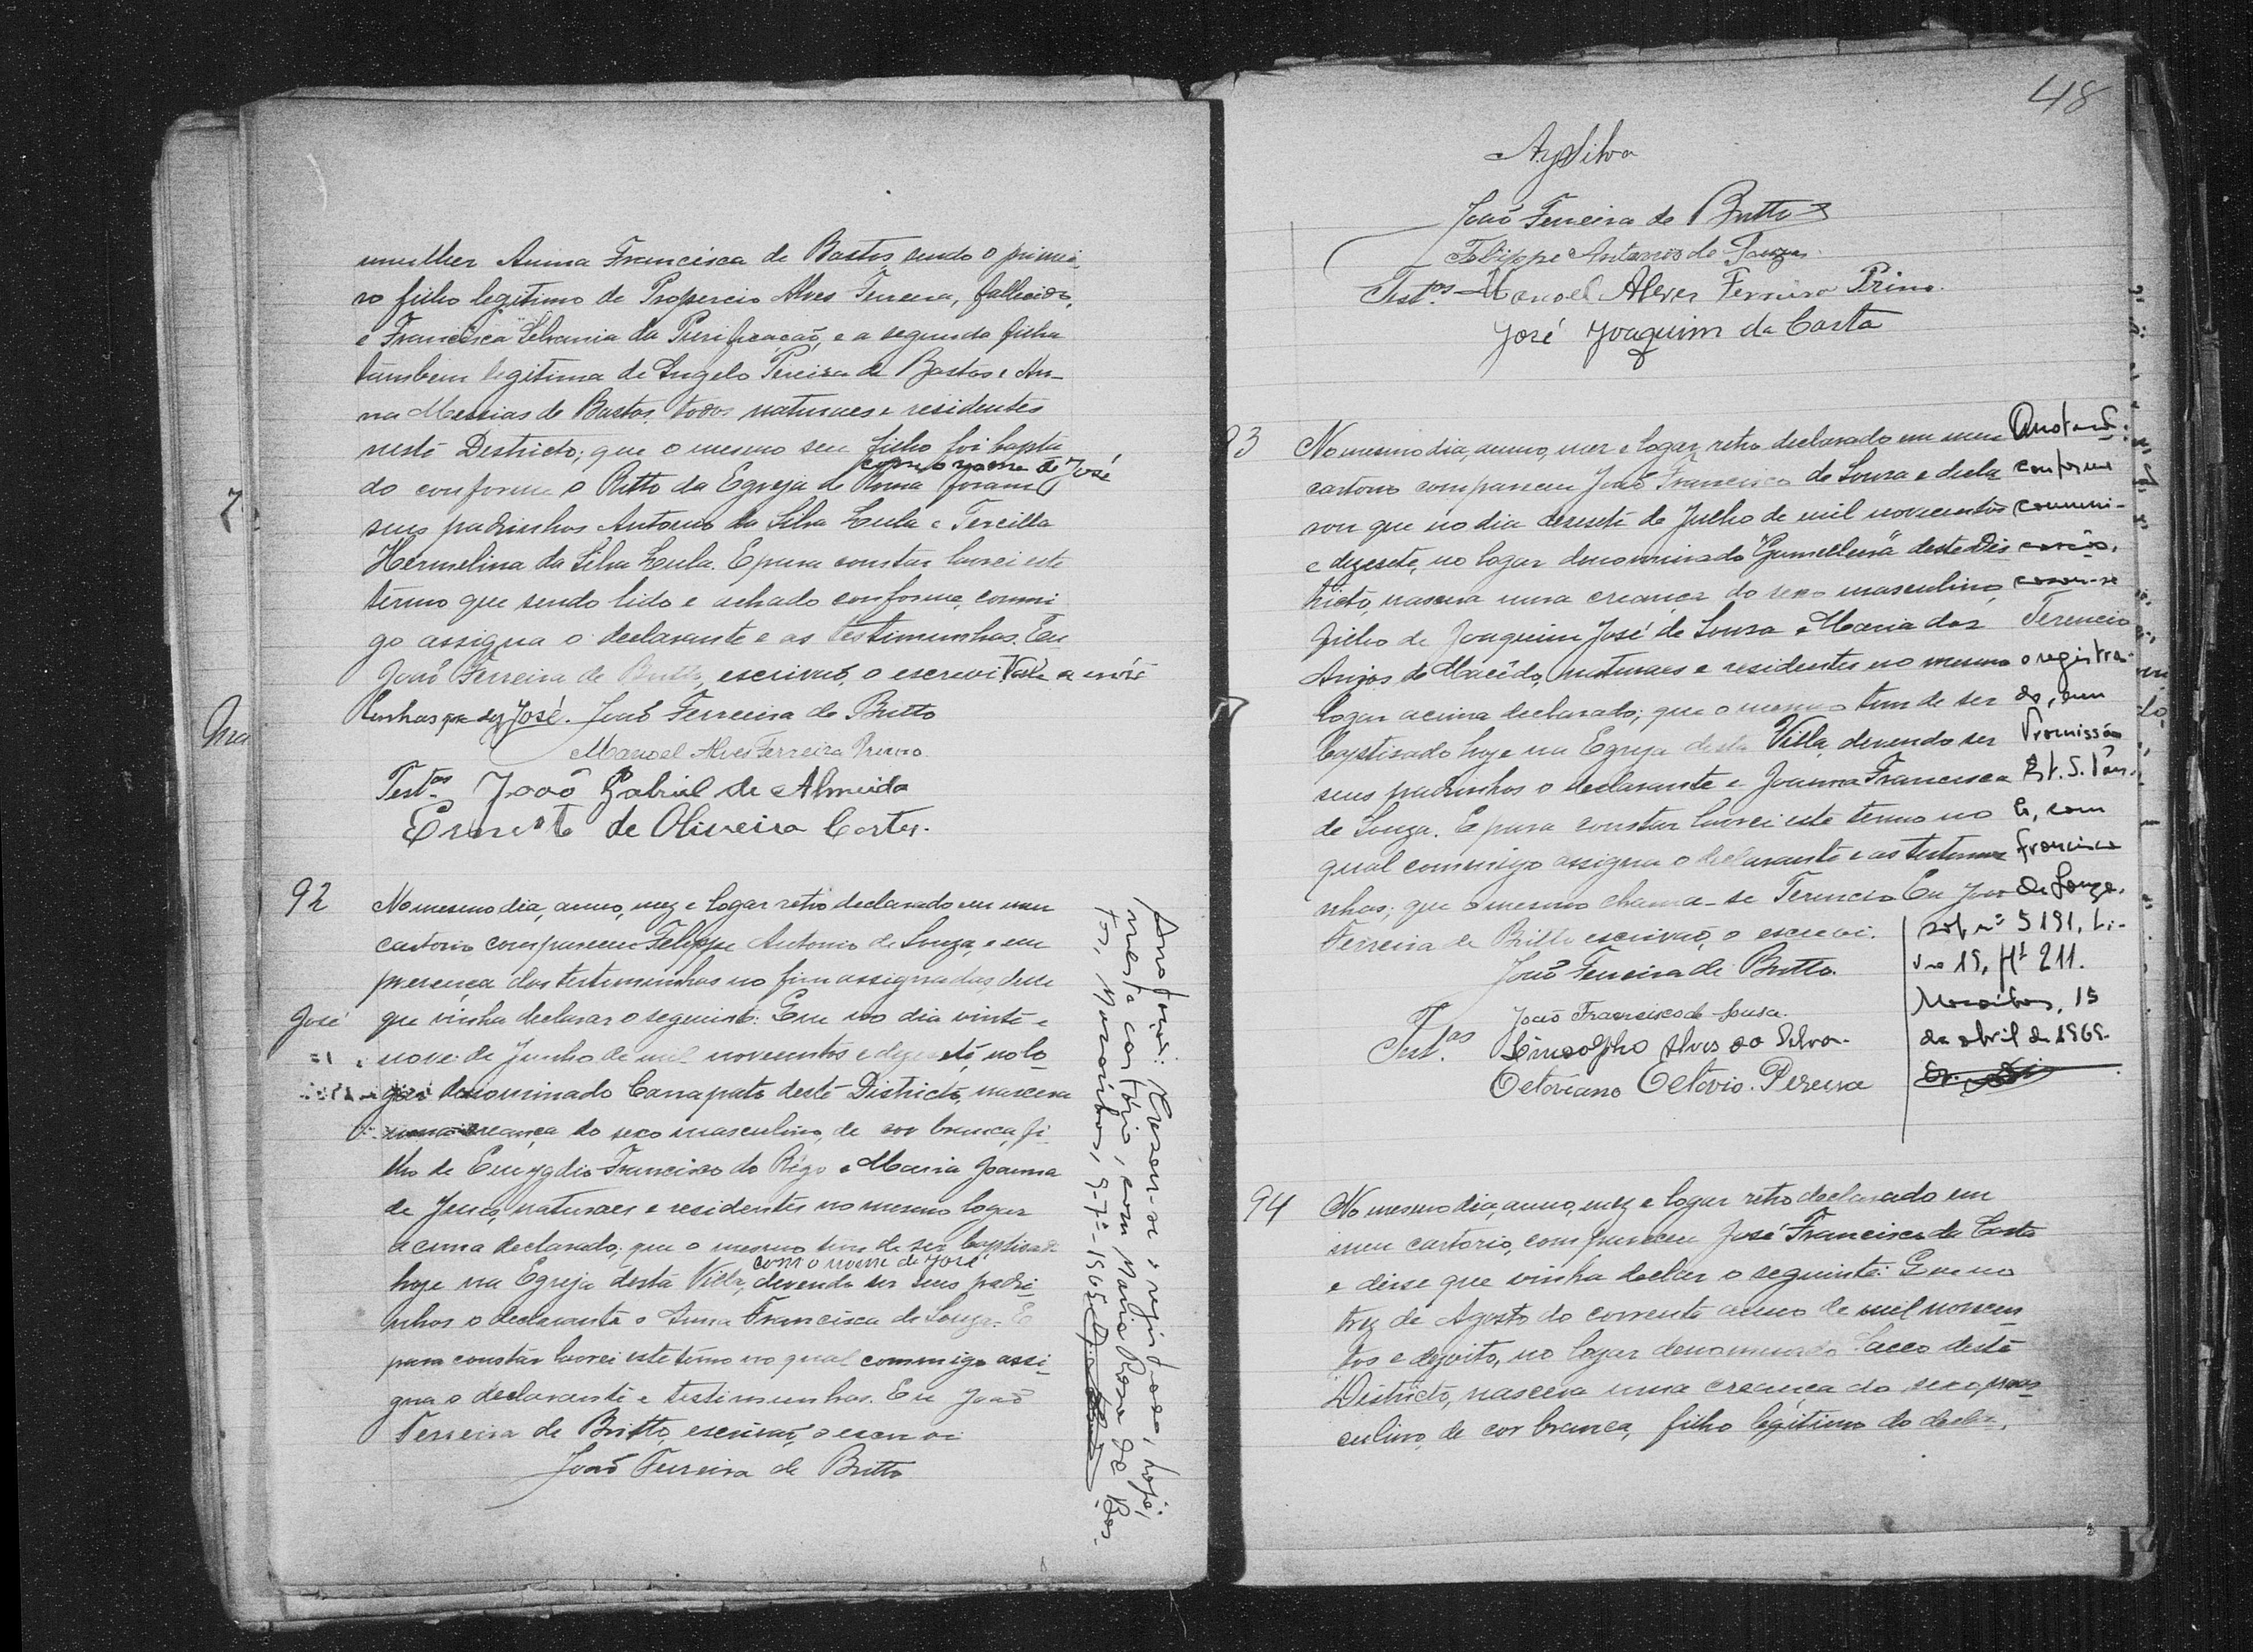 mulher Anna Francisca de Bastos sendo o primei-
ro filho legitimo de Propercio Alves Ferreira, fallecido,
e Francisca Selvania da Purificação, e a segunda filha
tambem legitima de Angelo Pereira de Bastos e An-
na Messias de Bastos, todos naturaes e residentes
neste Destricto; que o mesmo seu filho foi baptisa
com o nome de José
do conforme o Ritto da Egreja de Roma foram
seus padrinhos Antonio da Silva Leula e Tercilla
Hermelina da Silva Leula. E para constar lavrei este
termo que sendo lido e achado conforme, commi
go assigna o declarante e as testimunhas. Eu
João Ferreira de Britto, escrivaõ, o escrevi. Vale a entre
linhas que diz José. João Ferreira de Britto
Manoel Alves Ferreira Primo
Test.as João Gabriel de Almeida
Ernesto de Oliveira Cortes.
92
No mesmo dia, anno, mez e logar retro declarado em meu
cartorio compareceu Felippe Antonio de Souza, e em
presença das testimunhas no fim assignadas, disse
José
que vinha declarar o seguinte: Que no dia vinte e
nove de Junho de mil novecentos e dezesete, no lo-
gar denominado Carrapato deste Districto, nascera
uma creança do sexo masculino, de cor branca, fi-
lho de Emygdio Francisco do Rêgo e Maria Joanna
de Jesus, naturaes e residentes no mesmo logar
acima declarado; que o mesmo tem de ser baptisado
com o nome de José
hoje na Egreja desta Villa, devendo ser seus padri-
nhos o declarante e Anna Francisca de Souza. E
para constar lavrei este têrmo no qual commigo assi-
gna o declarante e testimunhas. Eu João
Ferreira de Britto, escrivaõ, o escrevi
João Ferreira de Britto
Anotação: Casou-se o registrado, hoje,
nesta cartório, com Maria Rosa de Bas-
tos, Macaúbas, 9-7-1965
48
AgpSilva
João Ferreira de Britto
Felippe Antonio de Souza
Test.as Manoel Alves Ferreira Primo.
José Joaquim da Costa
93
No mesmo dia, anno, mez e logar, retro declarado em meu
cartorio compareceu João Francisco de Souza e decla
rou que no dia desesete de Julho de mil novecentos
e dezesete, no logar denominado "Gamelleira" deste Dis
tricto, nascera uma creança do sexo masculino,
filho de Joaquim José de Souza e Maria dos
Anjos de Macêdo, naturaes e residentes no mesmo
logar acima declarado; que o mesmo tem de ser
baptisado hoje na Egreja desta Villa, devendo ser
seus padrinhos o declarante e Joanna Francisca
de Souza. E para constar lavrei este termo no
qual commigo assigna o declarante e as testemu
nhas; que o mesmo chama-se Terencio Eu João
Ferreira de Britto escrivaõ, o escrevi.
João Ferreira de Britto.
João Francisco de Sousa.
Test.as Lindolpho Alves da Silva.
Octaviano Octavio Pereira
Anotação:
conforme
comuni-
cação,
casou-se
Terencio
o registra-
do, em
Promissão
Est. S. Pau-
lo, com
Francisca
de Souza.
sob nº 5191, Li-
vro 19, fls 211.
Macaúbas, 15
de abril de 1969.
94
No mesmo dia, anno, mez e logar retro declarado em
meu cartorio, compareceu José Francisco da Costa
e disse que vinha declar o seguinte: Que no
trez de Agosto do corrente anno de mil novecen
tos e dezoito, no logar denominado Sacco deste
Districto, nascera uma creança do sexo mas
culino, de cor branca, filho legitimo do decla-